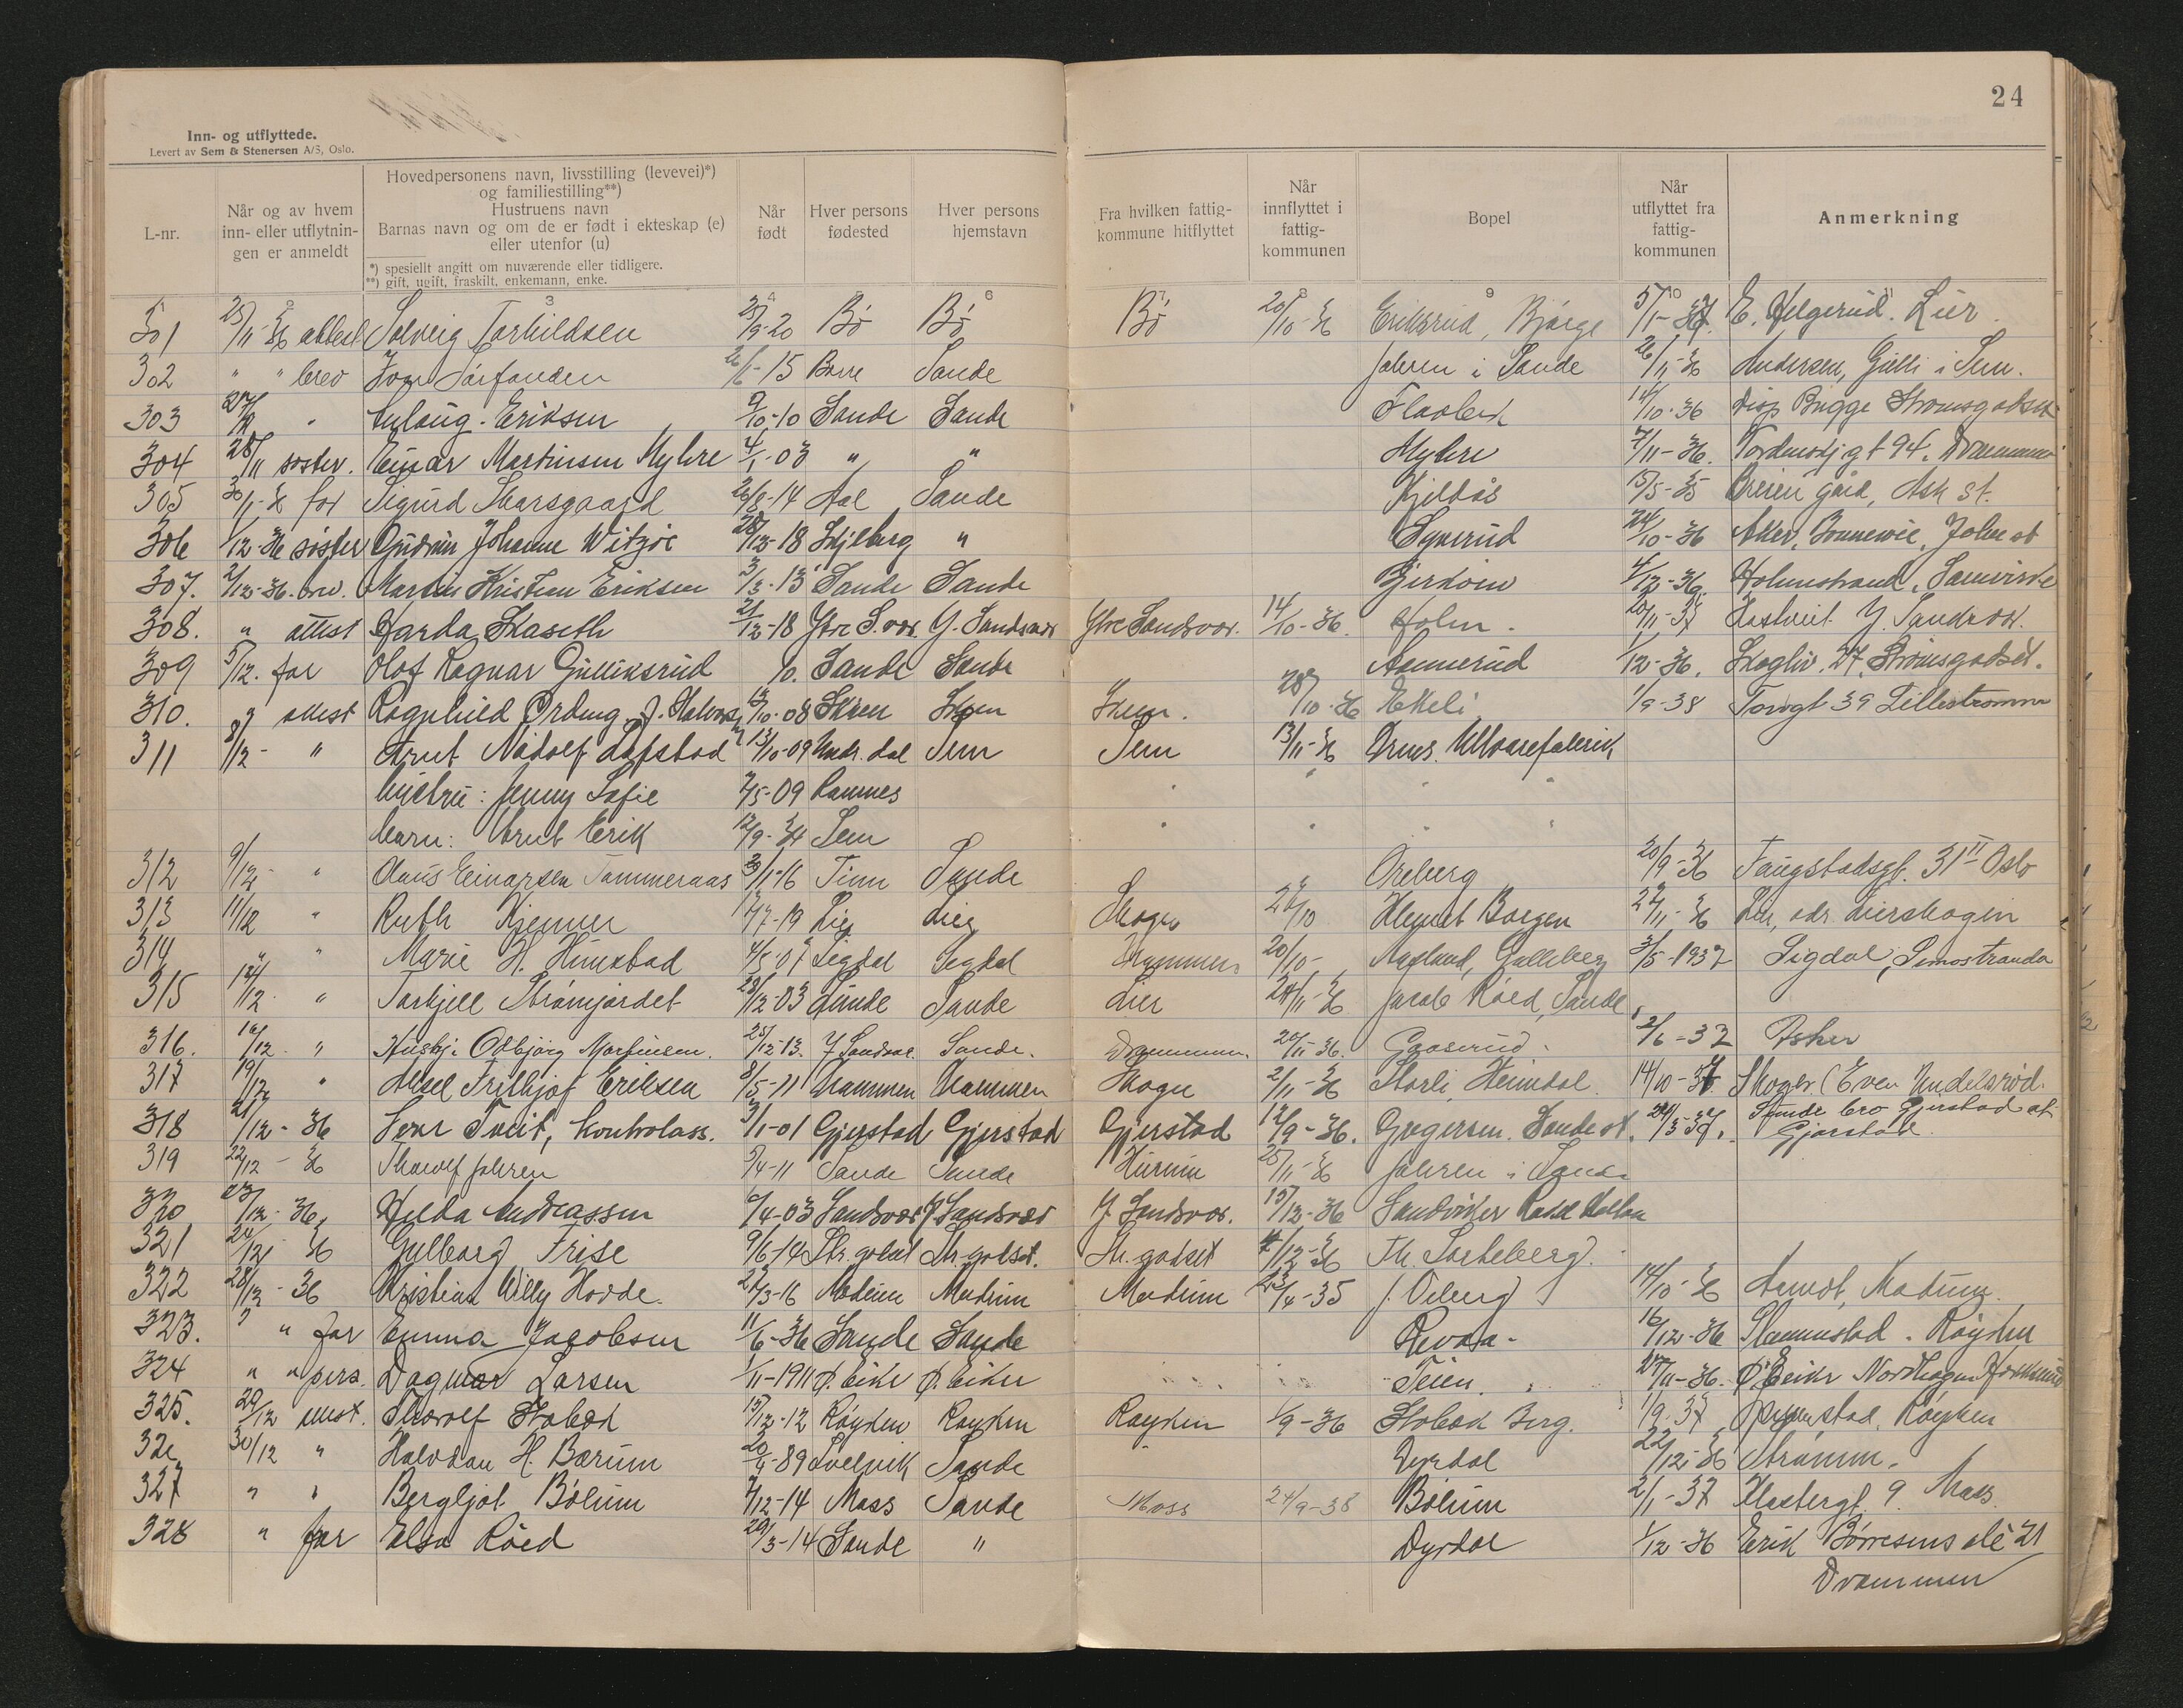 24
Inn- og utflyttede.
Levert av Sem & Stenersen A/S, Oslo.
L-nr.
Når og av hvem inn- eller utflytnin- gen er anmeldt
Hovedpersonens navn, livsstilling (levevei)*)
og familiestilling**)
Hustruens navn
Barnas navn og om de er født i ekteskap (e)
eller utenfor (u)
*) spesiellt angitt om nuværende eller tidligere.
**) gift, ugift, fraskilt, enkemann, enke.
Når født
Hver persons fødested
Hver persons hjemstavn
Fra hvilken fattig- kommune hitflyttet
Når innflyttet i fattig- kommunen
Bopel
Når utflyttet fra fattig- kommunen
Anmerkning
301 25/11-36 attest Solveig Torkildsen 25/9-20 Bö Bö Bö 20/10-36 Eriksrud, Bjørge 5/1-37. E. Helgerud. Lier.
302 " " brev 26/6-15 Borre Sande Jahren i Sande 26/11-36 Andersen, Gulli i Sem.
303 " Aslaug Eriksen 9/10-10 Sande Sande 14/10-36 Disp Bugge Strømsgodset
304 28/11 søster. Einar Martinsen Myhre 4/1-03 " " Myhre 7/11-36. Tordenskj.gt 94. Drammen
305 for Sigurd 26/8-14 Aal Sande 15/5-35 gård, Ask st.
306 1/12-36 søster Gudrun Johanne 28/12-18 Skjeberg " 24/10-36 Aker,
307. 2/12-36. brev. Martin Kristian Eriksen 3/3-13 Sande Sande 4/12-36. Holmestrand, Samvirke
308. " attest 21/12-18 Ytre S.vær. Y. Sandsvær Ytre Sandsvær. 14/10-36. Holm. 20/11-37 Y. Sandsvær.
309 5/12. far Olof Ragnar Gulliksrud Sande Sande Aamerud 1/12-36. Skogliv. 27. Strømsgodset.
310. " attest Ragnhild Ording 13/10-08 Skien Skien Skien. 28/10-36 Ekeli 1/9-38 Torvgt 39 Lillestrømm
311 8/12- " Arnt Nadolf Løfstad 13/10-09 Sem Sem 13/11-36 Drms. Ullvarefabrik
hustru: Jenny Sofie 7/5-09 Ramnes " " "
barn: Arnt Erik 12/9-34 Sem " " " "
312 9/12- " Olaus Einarsen Tammeraas 30/1-16 Tinn Sande Øreberg 20/9-36 Faugstadsgt. 31 II Oslo
313 11/12 " Ruth Kjemer 7-19 Lier Lier Skoger 27/10 Klemet Borgen 27/11-36 Lier, adr. Lierskogen
314 " " Marie H. 4/5-07 Sigdal Sigdal Drammen 20/10- Galleberg 3/5-1937 Sigdal, Simostranda
315 14/12. " Torkjell Strømjordet 28/12-03 Lunde Sande Lier 24/11-36 Jacob Röed, Sande,
316. 16/12. " Husbj. Odbjørg Martinsen. 25/12-13. Y Sandsvær. Sande. Drammen. 20/11-36. Gaaserud. 2/6-37 Asker
317 19/12 " Aksel Frithjof Eriksen 8/5-11 Drammen Drammen Skoger 2/11-36 Storli, Heimdal 14/10-37 Skoger (Even Undelsrød.
318 21/12-36 Tveit, kontrolass. 3/1-01 Gjerstad Gjerstad Gjerstad 12/9-36. Gregersen. Sande st. 24/3-37. Sunde bro Gjerstad st.
Gjerstad
319 22/12-36 Thorolf Jahren 5/4-11 Sande Sande Hurum 25/11-36 Jahren i Sande
320 23/12-36, Hilda Andreassen 6/4-03 Sandsvær Y Sandsvær Y. Sandsvær. 15/12-36 Sandviker
321 24/12 36 Gulborg Friise 9/6-14 Str. godset Str. godset. Str. godset 4/12-36 Th. Sorteberg.
322 28/12-36 Kristian Willy Hovde. 27/3-16 Modum Modum Modum 23/4-35 J. Oeberg 14/10-36 Modum.
323. " " far Emma Jacobsen 11/6-36 Sande Sande Revaa- 16/12-36 Røyken
324 " " pers. Dagmar Larsen 1/11-1911 Ø. Eiker Ø. Eiker Teien. 27/11-36. Ø. Eiker Nordhagen Hokksund
325. 29/12 attest. Thorolf Stabæk 15/12-12 Røyken Røyken Røyken 1/9-36 Stabæk Berg. 1/9.37 Røyken
326 30/12 " Halvdan H. Bærum 89 Svelvik Sande Dyrdal 22/12-36 Strømm.
327 " " Bergljot Bölum 7/12-14 Moss Sande Moss 24/9-38 Bölum 2/1-37 Klostergt. 9. Moss
328 " far Elsa Röed 20/3-14 Sande " Dyrdal 1/12-36 Erik Børresens alé 21
Drammen